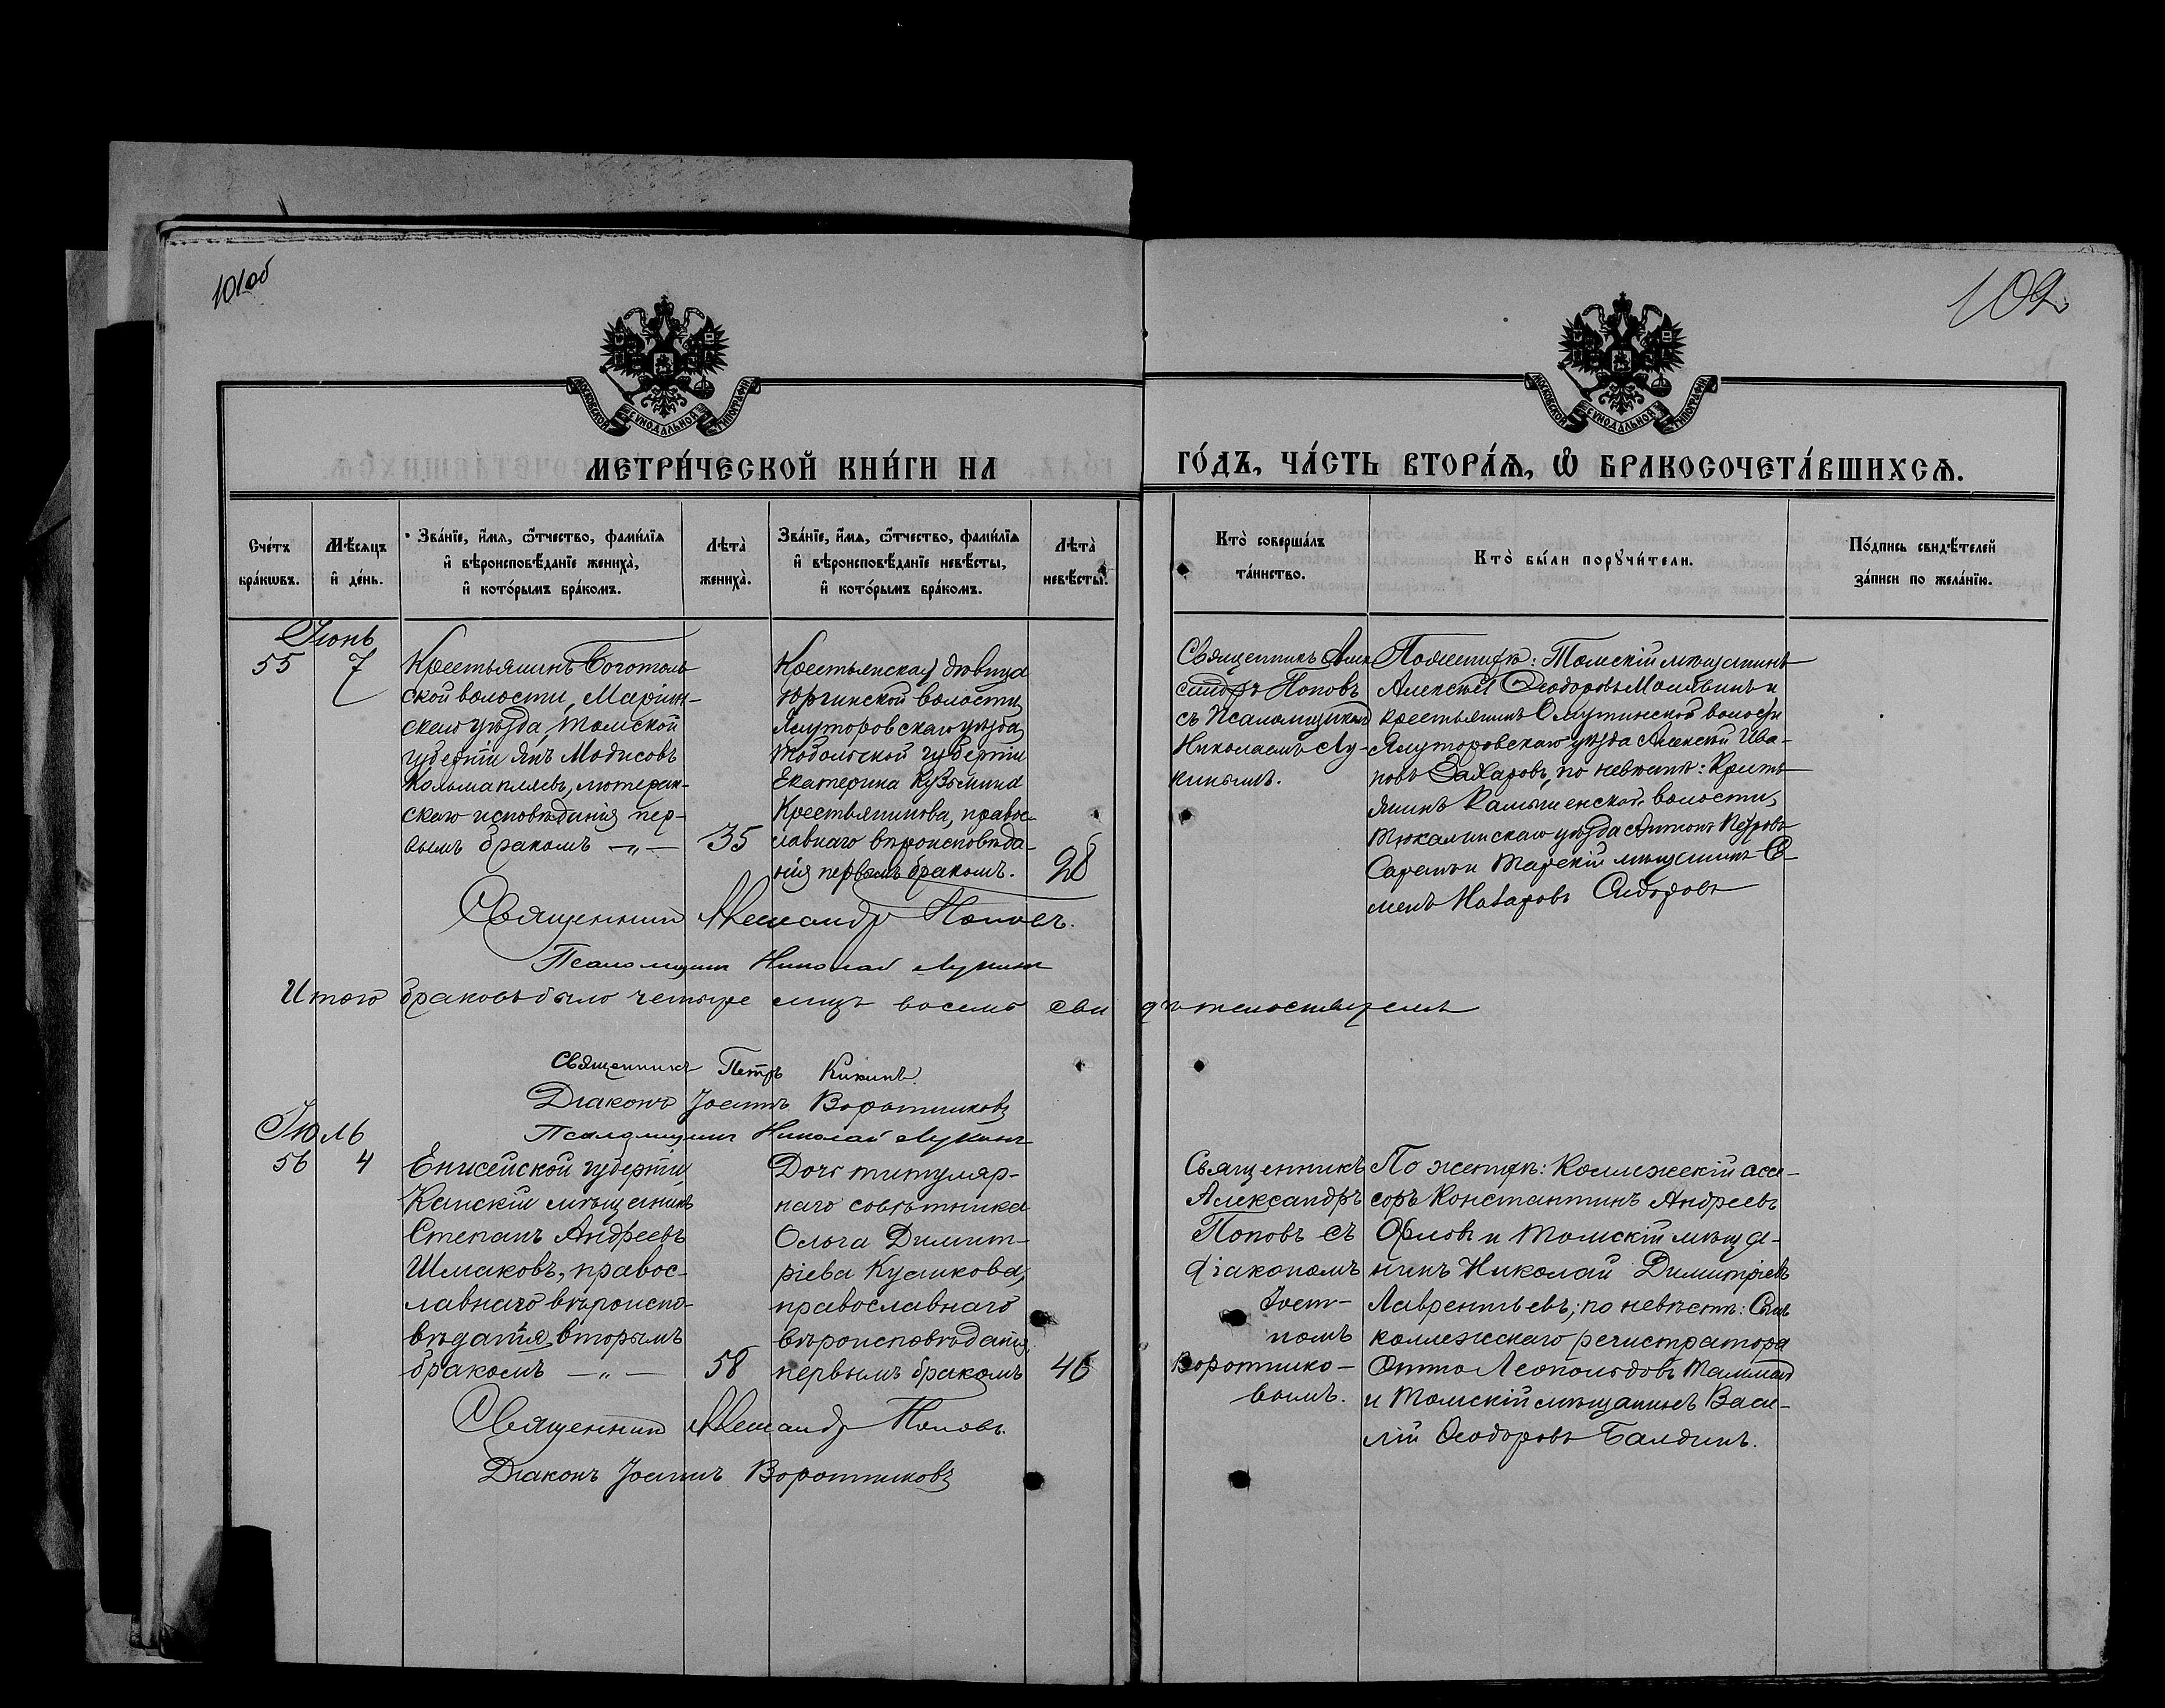 101об
102
МОСКОВСКОЙ СУНОДАЛЬНОЙ ТИПОГРАФІИ
МОСКОВСКОЙ СУНОДАЛЬНОЙ ТИПОГРАФІИ
МЕТРИ́ЧЕСКОЙ КНИ́ГИ НА
ГО́ДЪ, ЧА́СТЬ ВТОРА́Ѧ, Ѽ БРАКОСОЧЕТА́ВШИХСѦ.
Сче́тъ
бра́кѡвъ.
Мѣ́сяцъ
и҆ де́нь.
Зва́нїе, и҆́мѧ, ѻ҆́тчество, фами́лїѧ
и҆ вѣроисповѣ́данїе жениха̀,
и҆ кото́рымъ бра́комъ.
Лѣ́та̀
жениха̀.
Зва́нїе, и҆́мѧ, ѻ҆́тчество, фами́лїѧ
и҆ вѣроисповѣ́данїе невѣ́сты,
и҆ кото́рымъ бра́комъ.
Лѣ́та̀
невѣ́сты.
Кто̀ соверша́лъ
та́инство.
Кто̀ бы́ли порꙋчи́тели.
По́дпись свидѣ́телей
за́писи по жела́нїю.
Іюнь
55
7
Крестьянинъ Боготоль
ской волости, Маріин-
скаго уѣзда, Томской
губерніи Янъ Модисовъ
Кольма
лютеран-
скаго исповѣданія пер-
вымъ бракомъ —„—
35
Крестьянская дѣвица
Юргинской волости
Ялуторовскаго уѣзда
Тобольской губерніи
Екатерина Кузьмина
Крестьянинова, правос-
лавнаго вѣроисповѣда-
нія первымъ бракомъ.
28
Священникъ Алек
сандръ Поповъ
съ Псаломщикомъ
Николаемъ Лу-
кинымъ.
По женихѣ: Томскій мѣщанинъ
Алексѣй Ѳеодоровъ Малявинъ и
крестьянинъ Омутинской волости
Ялуторовскаго уѣзда Алексѣй Ива-
новъ Захаровъ, по невѣстѣ: Кресть
янинъ Камышенской волости,
Тюкалинскаго уѣзда Антонъ Петровъ
и Тарскій мѣщанинъ Се-
менъ Назаровъ Сидоровъ
Священникъ Александръ Поповъ.
Псаломщикъ Николай Лукинъ
Итого браковъ было четыре лицъ восемь сви дѣтельствуемъ
Священникъ Петръ Кикинъ.
Діаконъ Іоаннъ Воротниковъ
Псаломщикъ Николай Лукинъ
Іюль
56
4
Енисейской губерніи,
Канскій мѣщанинъ
Степанъ Андреевъ
Шмаковъ, правос-
лавнаго вѣроиспо-
вѣданія, вторымъ
бракомъ —„—
58
Дочь титуляр-
наго совѣтника
Ольга Димит-
ріева Кушкова,
православнаго
вѣроисповѣданія,
первымъ бракомъ
46
Священникъ
Александръ
Поповъ съ
діакономъ
Іоан-
номъ
Воротнико-
вымъ.
По женихѣ: Коллежскій ассе-
соръ Константинъ Андреевъ
Орловъ и Томскій мѣща-
нинъ Николай Димитріевъ
Лаврентьевъ; по невѣстѣ: Сынъ
коллежскаго регистратора
Отто Леопольдовъ Тамман
и Томскій мѣщанинъ Васи-
лій Ѳеодоровъ Балдинъ.
Священникъ Александръ Поповъ.
Діаконъ Іоаннъ Воротниковъ